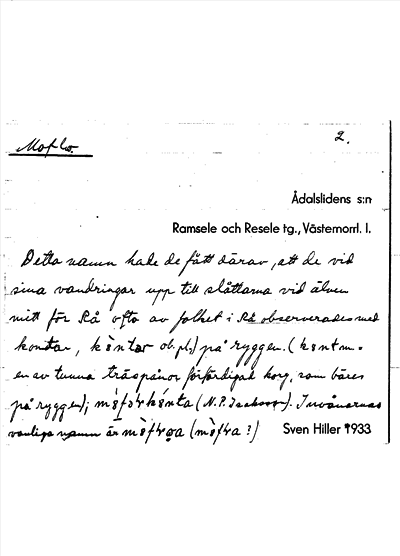 Moflo.
2.
Ådalslidens s:n
Ramsele och Resele tg., Västernorrl. l.
Detta namn hade de fått därav, att de vid
sina vandringar upp till slåttarna vid älven
mitt för Rå ofta av folket i Rå observerades med
kontar, ob.pl.) på ryggen. (
en av tunna träspånor förfärdigad korg, som bäres
på ryggen); (N.P. Isaksson). Invånarnas
vanliga namn är
Sven Hiller 1933